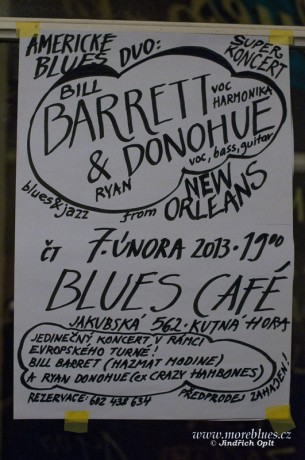 AMERICKÉ
BLUES DUO:
SUPER
KONCERT
BILL
BARRETT VOC
HARMONIKA
& DONOHUE
RYAN
voc, bass, guitar
blues & jazz from NEW
ORLEANS
ČT 7. ÚNORA 2013 · 19⁰⁰
BLUES CAFÉ
JAKUBSKÁ 562 · KUTNÁ HORA
JEDINEČNÝ KONCERT V RÁMCI
EVROPSKÉHO TURNÉ!
BILL BARRET (HAZMAT MODINE)
A RYAN DONOHUE (ex CRAZY HAMBONES)
REZERVACE: 602 438 634
PŘEDPRODEJ ZAHÁJEN!
www.moreblues.cz
© Jindřich Oplt